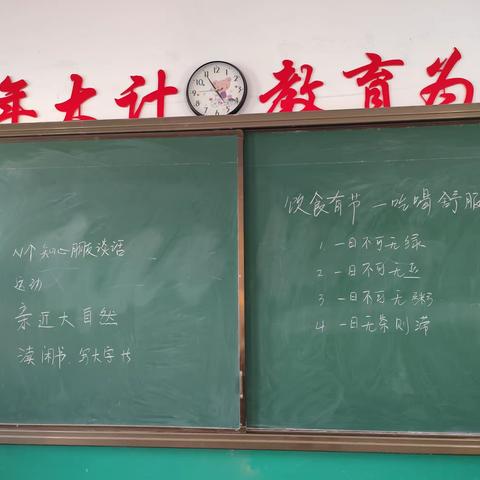 年大计 教育为
N个知心朋友谈话
运动
亲近大自然
读闲书、写大字
饮食有节 一吃喝舒服
1 一日不可无绿
2 一日不可无豆
3 一日不可无粥
4 一日无茶则滞